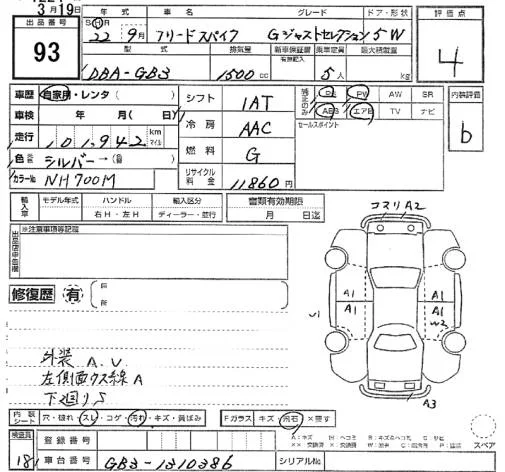 3月19日
出品番号
93
年式 車名 グレード ドア・形状 評価点
S H 22年 9月 フリードスパイク Gジャストセレクション 5W
4
型式 排気量 新車保証書 乗車定員 最大積載量
有無記入
DBA-GB3 1500cc 5人 kg
車歴 自家用・レンタ( )
車検 年 月( 日)
走行 101,942 km マイル
色 シルバー→(
カラーNo NH700M
シフト 1AT
冷房 AAC
燃料 G
リサイクル料金 11860円
純正のみ PS PW AW SR
ABS エアB TV ナビ
セールスポイント
内装評価
b
輸入車 モデル年式 ハンドル 輸入区分
右H・左H ディーラー・並行
書類有効期限
月 日迄
出品店申告欄
※注意事項等記載
修復歴 有
コスリA2
A1 A1
A1 A1
W2
A3
外装 A.U
左側面ウス線A
下廻りS
内装シート 穴・破れ・スレ・コゲ・汚れ・キズ・黄ばみ
Fガラス キズ・飛石×要す
スペア
検査員
181
登録番号
車台番号 GB3-1310386 シリアルNo